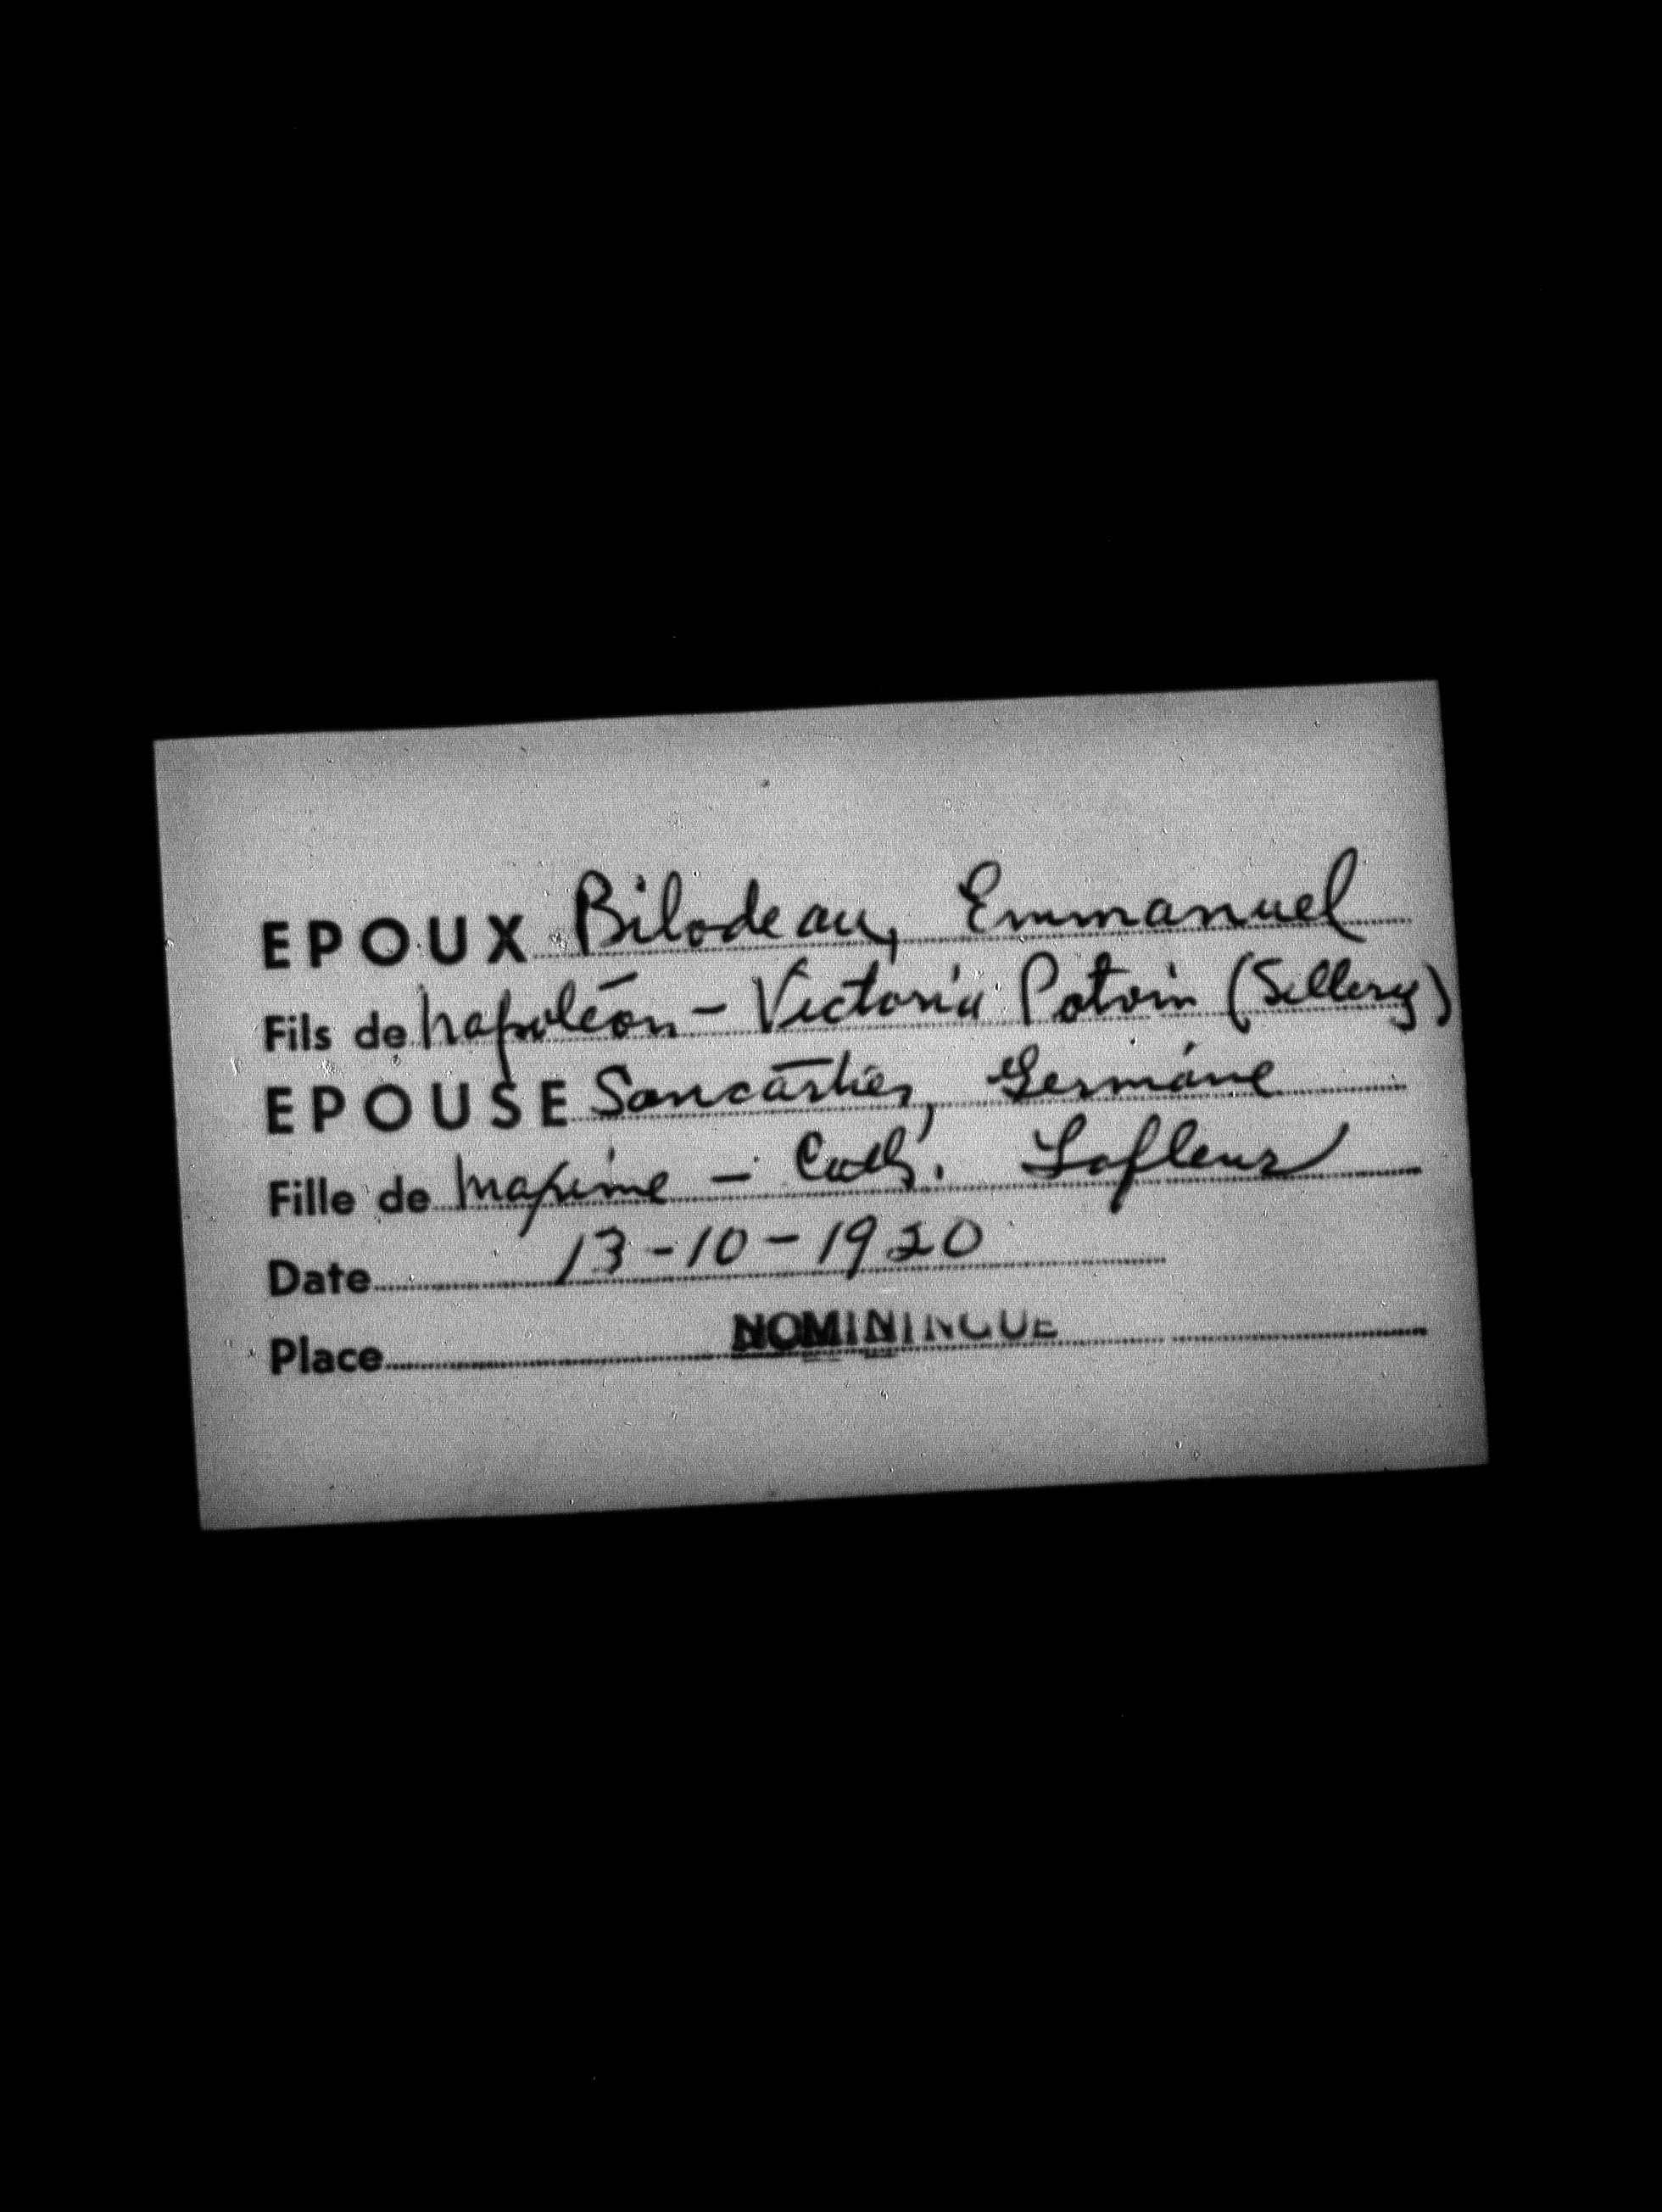 EPOUX Bilodeau, Emmanuel
Fils de Napoléon - Victoria Potvin (Sillery)
EPOUSE Sancartier, Germaine
Fille de Maxime - Cath. Lafleur
Date 13-10-1920
Place NOMININGUE